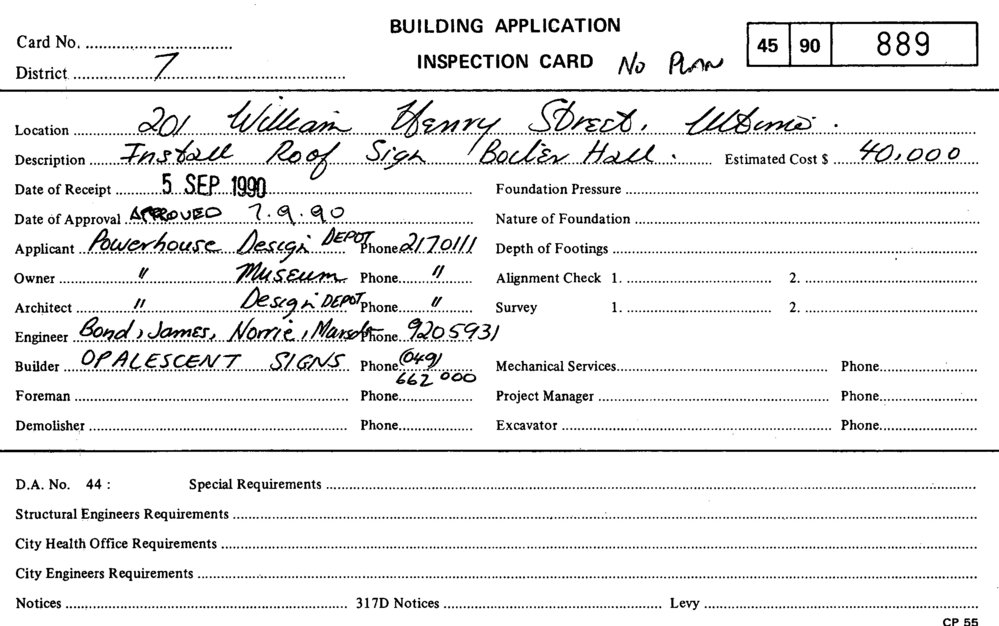 BUILDING APPLICATION
Card No. 45 90 889
INSPECTION CARD No PLAN
District 7
Location 201 William Henry Street, Ultimo.
Description Install Roof Sign Boiler Hall. Estimated Cost $ 40,000
Date of Receipt 5 SEP 1990 Foundation Pressure
Date of Approval APPROVED 7.9.90 Nature of Foundation
Applicant Powerhouse Design DEPOT Phone 2170111 Depth of Footings
Owner " Museum Phone " Alignment Check 1. 2.
Architect " Design DEPOT Phone " Survey 1. 2.
Engineer Bond, James, Norrie, Phone 9205931
Builder OPALESCENT SIGNS Phone (049) 662 000 Mechanical Services Phone
Foreman Phone Project Manager Phone
Demolisher Phone Excavator Phone
D.A. No. 44 : Special Requirements
Structural Engineers Requirements
City Health Office Requirements
City Engineers Requirements
Notices 317D Notices Levy
CP 55